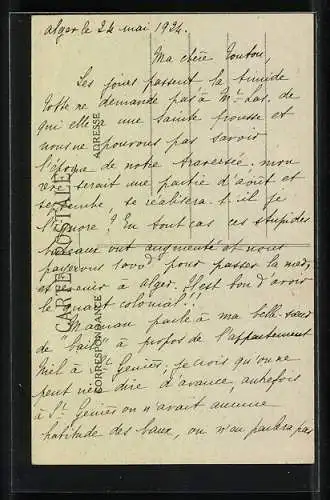 Alger le 24 mai 1934.
Ma chère Toutou,
Les jours passent la timide
Totte ne demande pas à Mr Las. de
qui elle a une sainte frousse et
nous ne pouvons pas savoir
l'époque de notre traversée. mon
rêve serait une partie d'août et
septembre, se réalisera-t-il je
l'ignore! En tout cas ces stupides
bureaux ont augmenté et nous
payerons pour passer la mer,
et revenir à Alger. C'est bon d'avoir
le quart colonial!!
Maman parle à ma belle-sœur
de "bail" à propos de l'appartement
Niel à St Geniès; je crois qu'on ne
peut rien dire d'avance, autrefois
à St Geniès on n'avait aucune
habitude des baux, ou n'en parlera pas
CARTE POSTALE
CORRESPONDANCE
ADRESSE